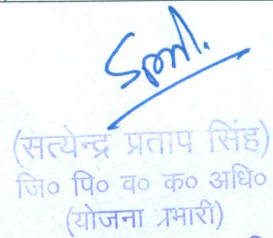 (सत्येन्द्र प्रताप सिंह)
जि० पि० व० क० अधि०
(योजना प्रभारी)